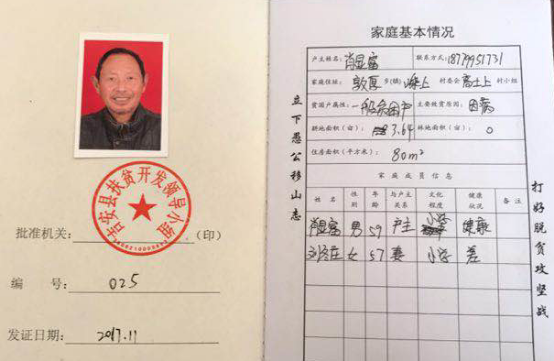 吉安县扶贫开发领导小组
批准机关：（印）
编 号：025
发证日期：2017.11
立下愚公移山志
家庭基本情况
户主姓名：肖显富 联系方式：18779951731
家庭住址：敦厚乡(镇) 上村委会 上村小组
贫困户属性：一般贫困户 主要致贫原因：因病
耕地面积（亩）：3.64 林地面积（亩）：0
住房面积（平方米）：80m²
家庭成员信息
姓名 性别 年龄 与户主关系 文化程度 健康状况 备注
肖显富 男 59 户主 小学 健康
女 57 妻 小学 差
打好脱贫攻坚战